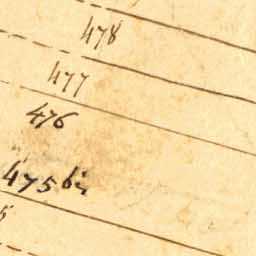 478
477
476
475 bis
5